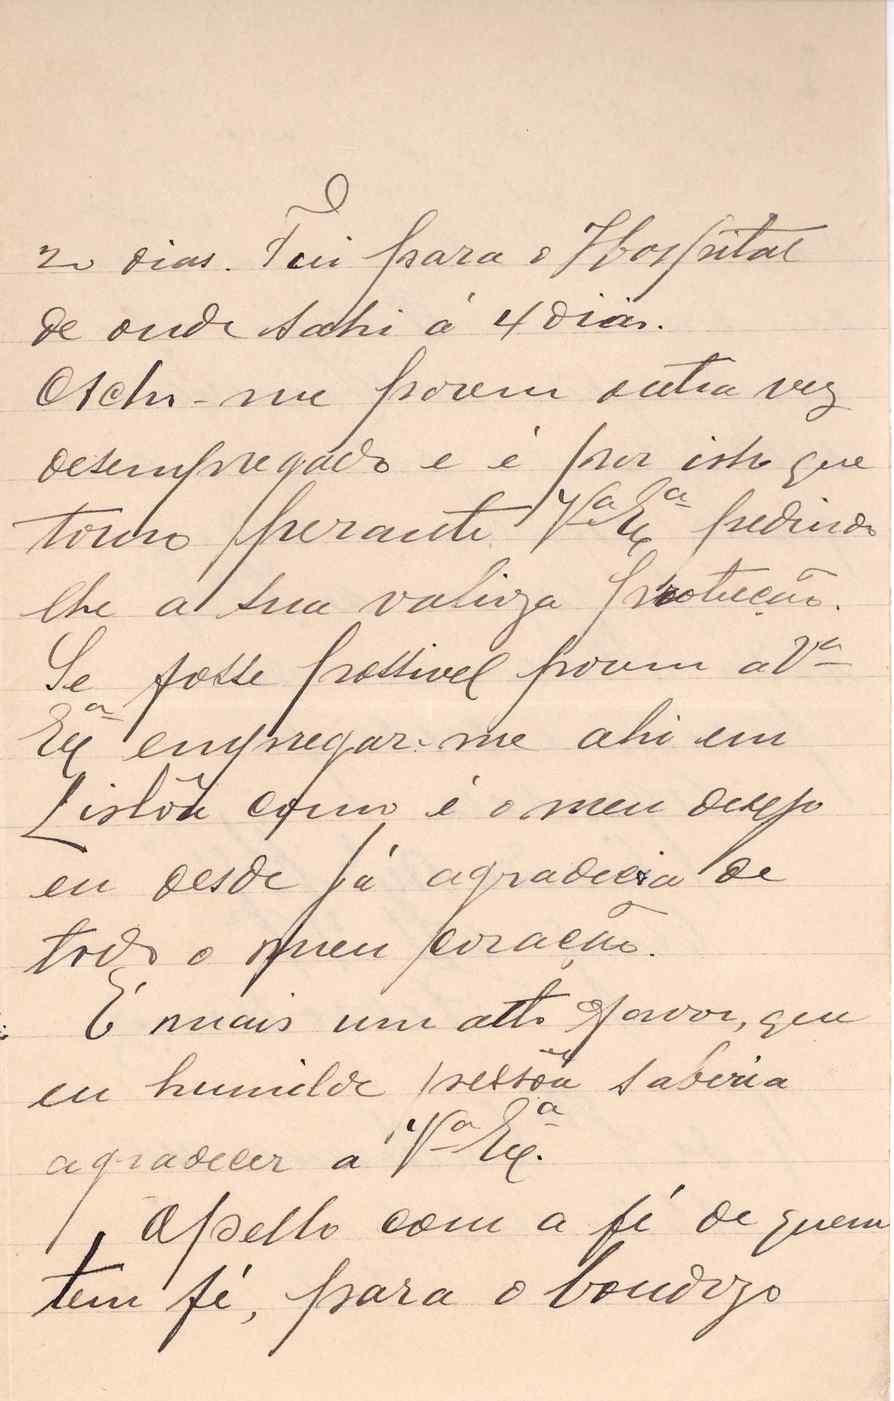 20 dias. Fui para o Hospital
de onde sahi á 4 dias.
Acho-me porem outra vez
desempregado e é por isto que
torno perante Vª Exª pedindo
lhe a sua valioza protecção.
Se fosse possivel porem a Vª
Exª empregar-me ahi em
Lisbôa como é o meu desejo
eu desde já agradecia de
todo o meu coração.
É mais um atto favor, que
eu humilde pessôa saberia
agradecer a Vª Exª.
Apello com a fé de quem
tem fé, para o bondozo